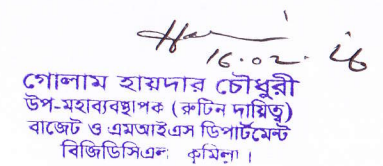 16.02.16
গোলাম হায়দার চৌধুরী
উপ-মহাব্যবস্থাপক (রুটিন দায়িত্ব)
বাজেট ও এমআইএস ডিপার্টমেন্ট
বিজিডিসিএল কুমিল্লা।